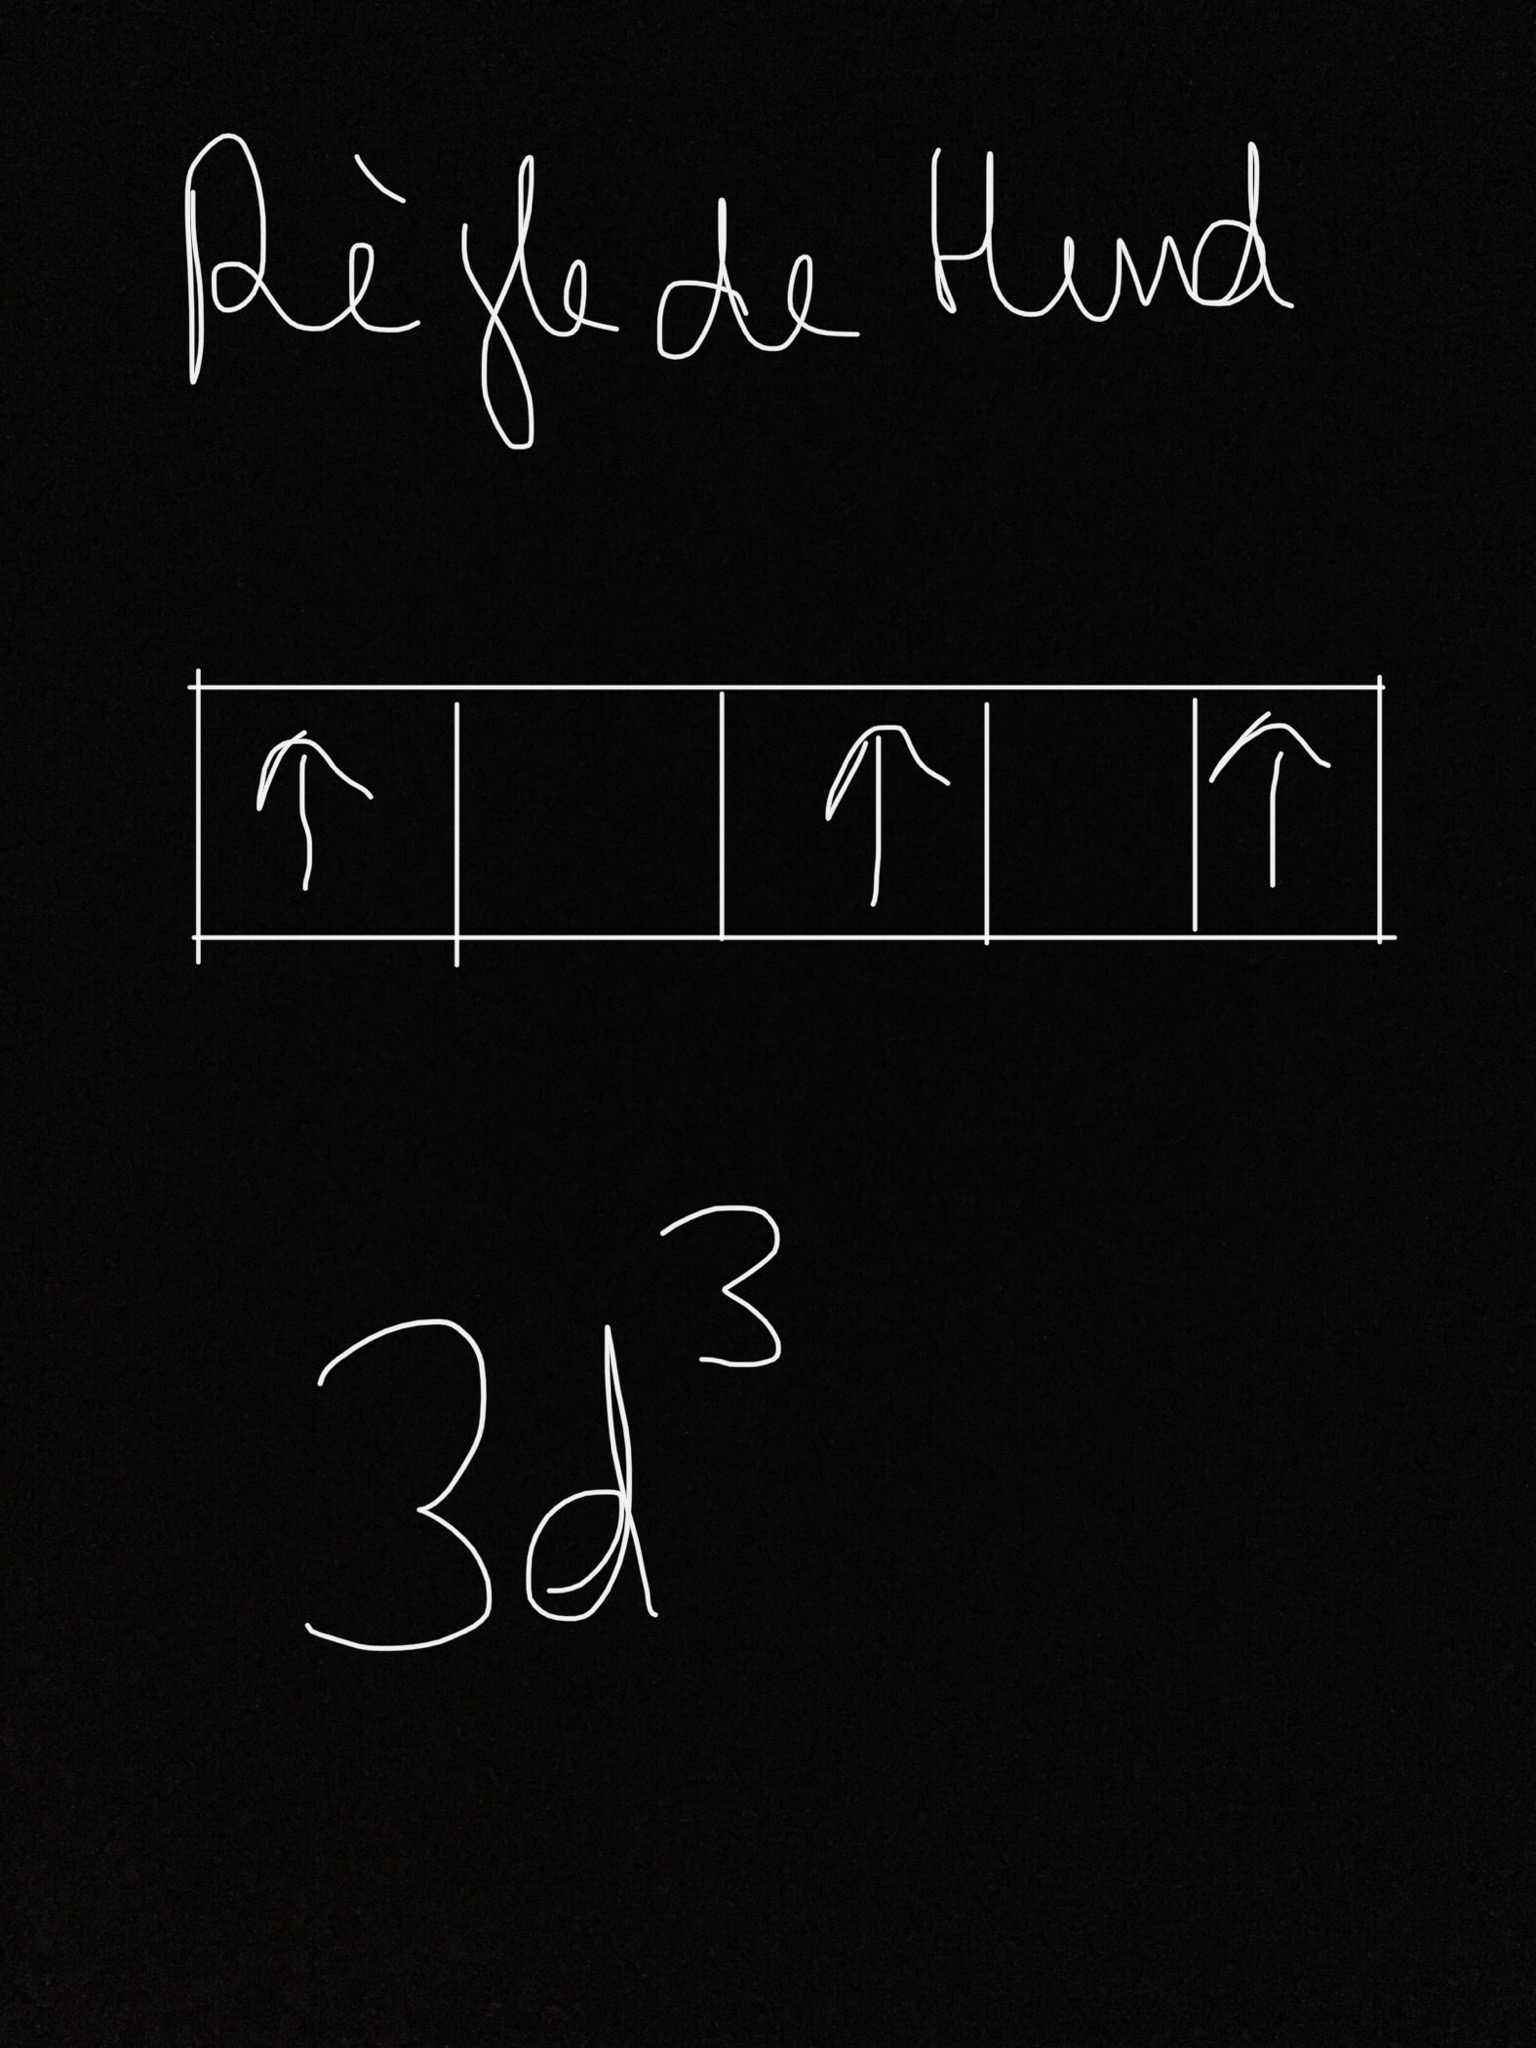 Règle de Hund
↑ ↑ ↑
3d³